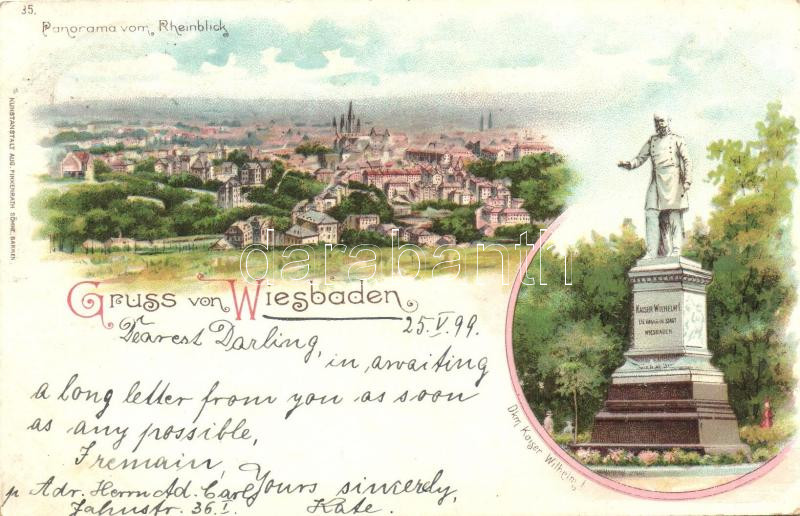 35.
Panorama vom Rheinblick
KUNSTANSTALT AUG. FINKENRATH SÖHNE, BARMEN.
darabanth
Gruss von Wiesbaden
25.V.99.
Dearest Darling,
in awaiting
a long letter from you as soon
as any possible,
I remain,
Yours sincerely,
Kate.
p Adr. Herrn Ad. Carl
Jahnstr. 36.I.
KAISER WILHELM I
STADT
WIESBADEN
Dkm. Kaiser Wilhelm I